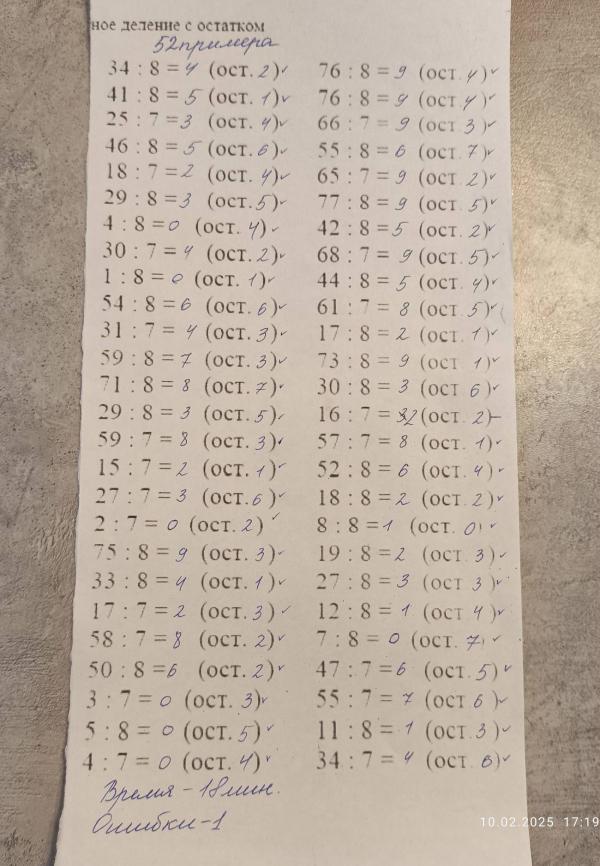 ное деление с остатком
52 примера
34 : 8 = 4 (ост. 2)✓
41 : 8 = 5 (ост. 1)✓
25 : 7 = 3 (ост. 4)✓
46 : 8 = 5 (ост. 6)✓
18 : 7 = 2 (ост. 4)✓
29 : 8 = 3 (ост. 5)✓
4 : 8 = 0 (ост. 4)✓
30 : 7 = 4 (ост. 2)✓
1 : 8 = 0 (ост. 1)✓
54 : 8 = 6 (ост. 6)✓
31 : 7 = 4 (ост. 3)✓
59 : 8 = 7 (ост. 3)✓
71 : 8 = 8 (ост. 7)✓
29 : 8 = 3 (ост. 5)✓
59 : 7 = 8 (ост. 3)✓
15 : 7 = 2 (ост. 1)✓
27 : 7 = 3 (ост. 6)✓
2 : 7 = 0 (ост. 2)✓
75 : 8 = 9 (ост. 3)✓
33 : 8 = 4 (ост. 1)✓
17 : 7 = 2 (ост. 3)✓
58 : 7 = 8 (ост. 2)✓
50 : 8 = 6 (ост. 2)✓
3 : 7 = 0 (ост. 3)✓
5 : 8 = 0 (ост. 5)✓
4 : 7 = 0 (ост. 4)✓
76 : 8 = 9 (ост. 4)✓
76 : 8 = 9 (ост. 4)✓
66 : 7 = 9 (ост. 3)✓
55 : 8 = 6 (ост. 7)✓
65 : 7 = 9 (ост. 2)✓
77 : 8 = 9 (ост. 5)✓
42 : 8 = 5 (ост. 2)✓
68 : 7 = 9 (ост. 5)✓
44 : 8 = 5 (ост. 4)✓
61 : 7 = 8 (ост. 5)✓
17 : 8 = 2 (ост. 1)✓
73 : 8 = 9 (ост. 1)✓
30 : 8 = 3 (ост. 6)✓
16 : 7 = 2 (ост. 2)–
57 : 7 = 8 (ост. 1)✓
52 : 8 = 6 (ост. 4)✓
18 : 8 = 2 (ост. 2)✓
8 : 8 = 1 (ост. 0)✓
19 : 8 = 2 (ост. 3)✓
27 : 8 = 3 (ост. 3)✓
12 : 8 = 1 (ост. 4)✓
7 : 8 = 0 (ост. 7)✓
47 : 7 = 6 (ост. 5)✓
55 : 7 = 7 (ост. 6)✓
11 : 8 = 1 (ост. 3)✓
34 : 7 = 4 (ост. 6)✓
Время - 18 мин.
Ошибки - 1
10.02.2025 17:19